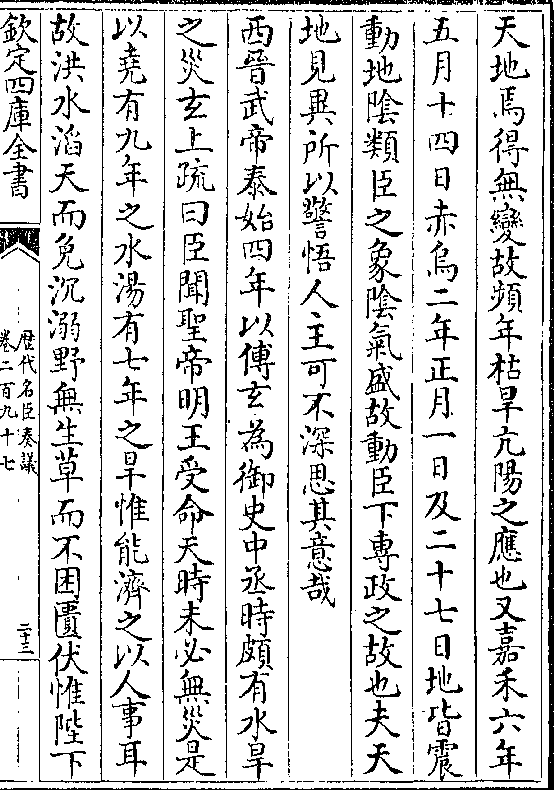 天地焉得無變故頻年枯旱亢陽之應也又嘉禾六年
五月十四日赤烏二年正月一日及二十七日地皆震
動地陰類臣之象陰氣盛故動臣下專政之故也夫天
地見異所以警悟人主可不深思其意哉
西晉武帝泰始四年以傅玄為御史中丞時頗有水旱
之災玄上疏曰臣聞聖帝明王受命天時未必無災是
以堯有九年之水湯有七年之旱惟能濟之以人事耳
故洪水滔天而免沉溺野無生草而不困匱伏惟陛下
欽定四庫全書
歷代名臣奏議
卷二百九十七
二十三